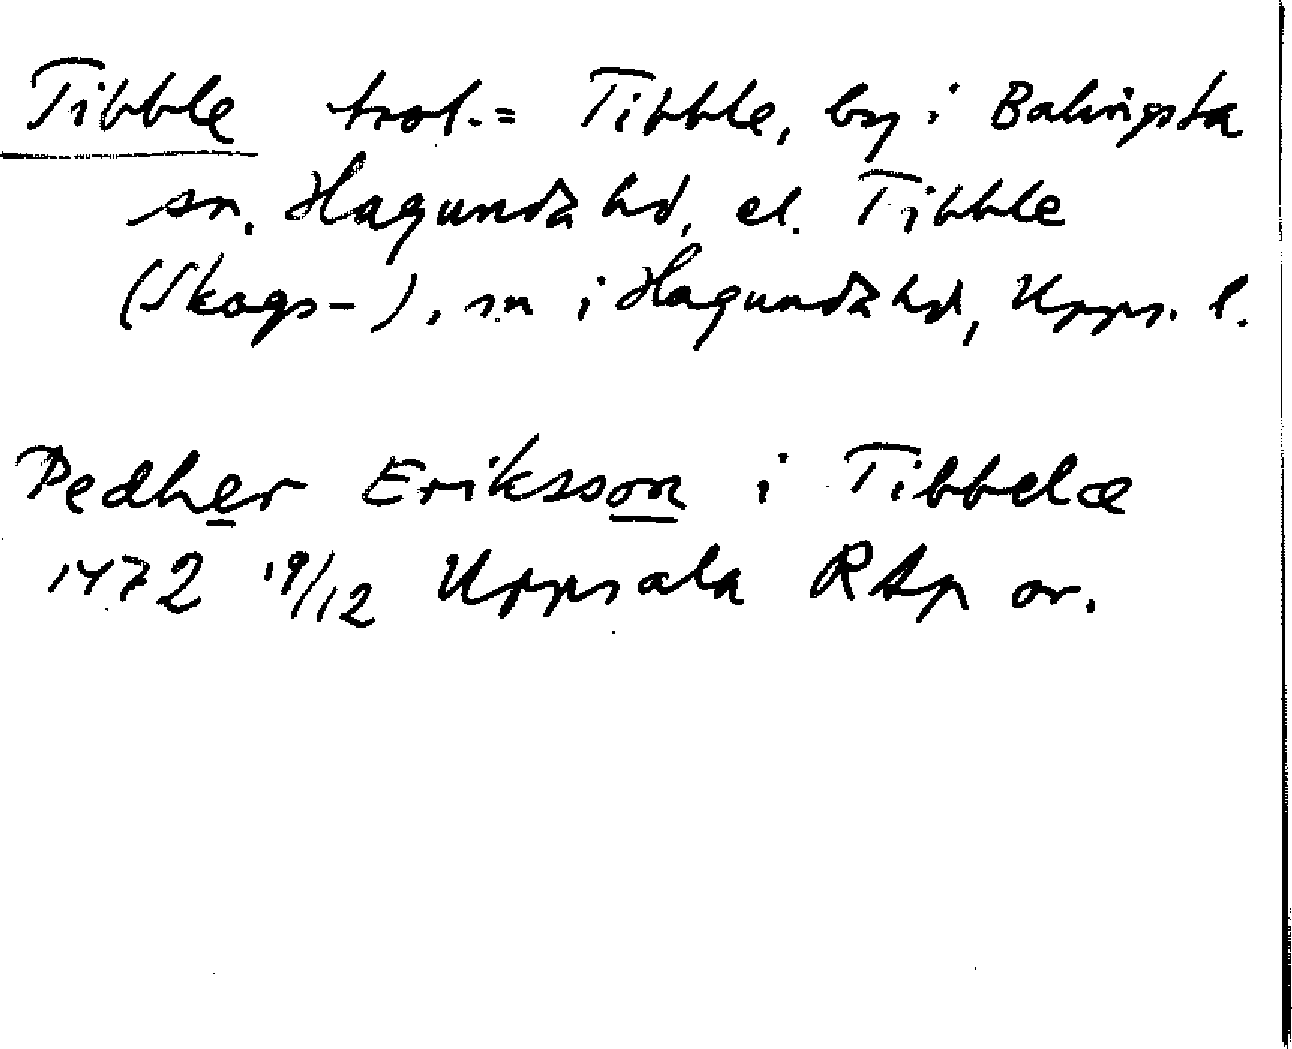 Tibble trol. = Tibble, by i Balingsta
sn, Hagunda hd, el. Tibble
(Skogs-), sn i Hagunda hd, Upps. l.
Pedher Eriksson i Tibbelæ
1472 19/12 Uppsala RAp or.